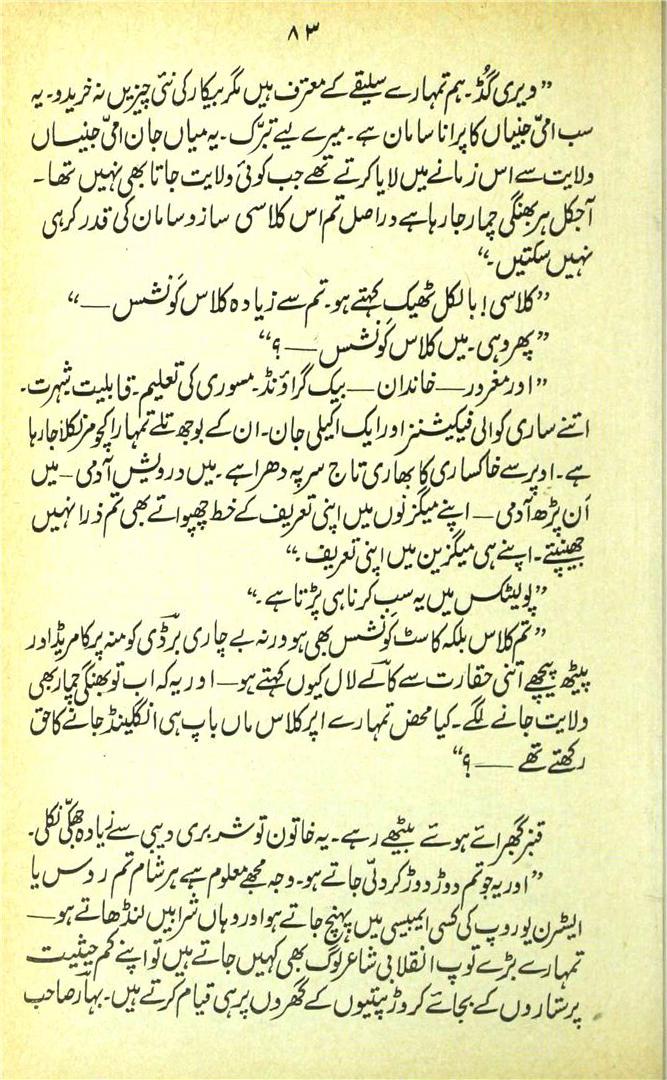 ۸۳
”ویری گُڈ۔ ہم تمہارے سلیقے کے معترف ہیں مگر بیکار کی نئی چیزیں نہ خریدو۔ یہ
سب امّی جنیاں کا پرانا سامان ہے۔ میرے لیے تبرّک۔ یہ میاں جان امّی جنیاں
ولایت سے اس زمانے میں لایا کرتے تھے جب کوئی ولایت جاتا بھی نہیں تھا۔
آجکل ہر بھنگی چمار جا رہا ہے دراصل تم اس کلاسی ساز و سامان کی قدر کر ہی
نہیں سکتیں۔“
”کلاسی! بالکل ٹھیک کہتے ہو۔ تم سے زیادہ کلاس کَونشس —“
”پھر وہی۔ میں کلاس کَونشس — ؟“
”اور مغرور — خاندان — بیک گراؤنڈ۔ مسوری کی تعلیم۔ قابلیت۔ شہرت۔
اتنے ساری کوالی فیکیشنز اور ایک اکیلی جان۔ ان کے بوجھ تلے تمہارا کچومر نکلا جا رہا
ہے۔ اوپر سے خاکساری کا بھاری تاج سر پہ دھرا ہے۔ میں درویش آدمی — میں
اَن پڑھ آدمی — اپنے میگزنوں میں اپنی تعریف کے خط چھپواتے بھی تم ذرا نہیں
جھینپتے۔ اپنے ہی میگزین میں اپنی تعریف۔“
”پولیٹکس میں یہ سب کرنا ہی پڑتا ہے۔“
”تم کلاس بلکہ کاسٹ کَونشس بھی ہو ورنہ بے چاری برڈی کو منہ پر کامریڈ اور
پیٹھ پیچھے اتنی حقارت سے کالے لال کیوں کہتے ہو — اور یہ کہ اب تو بھنگی چمار بھی
ولایت جانے لگے۔ کیا محض تمہارے اپر کلاس ماں باپ ہی انگلینڈ جانے کا حق
رکھتے تھے — ؟“
قنبر گھبرائے ہوئے بیٹھے رہے۔ یہ خاتون تو شربری دیبی سے زیادہ جھکّی نکلی۔
”اور یہ جو تم دوڑ دوڑ کر دلّی جاتے ہو۔ وجہ مجھے معلوم ہے ہر شام تم روس یا
ایسٹرن یوروپ کی کسی ایمبیسی میں پہنچ جاتے ہو اور وہاں شرابیں لنڈھاتے ہو —
تمہارے بڑے توپ انقلابی شاعر لوگ بھی کہیں جاتے ہیں تو اپنے کم حیثیت
پرستاروں کے بجائے کروڑپتیوں کے گھروں پر ہی قیام کرتے ہیں۔ بہار صاحب